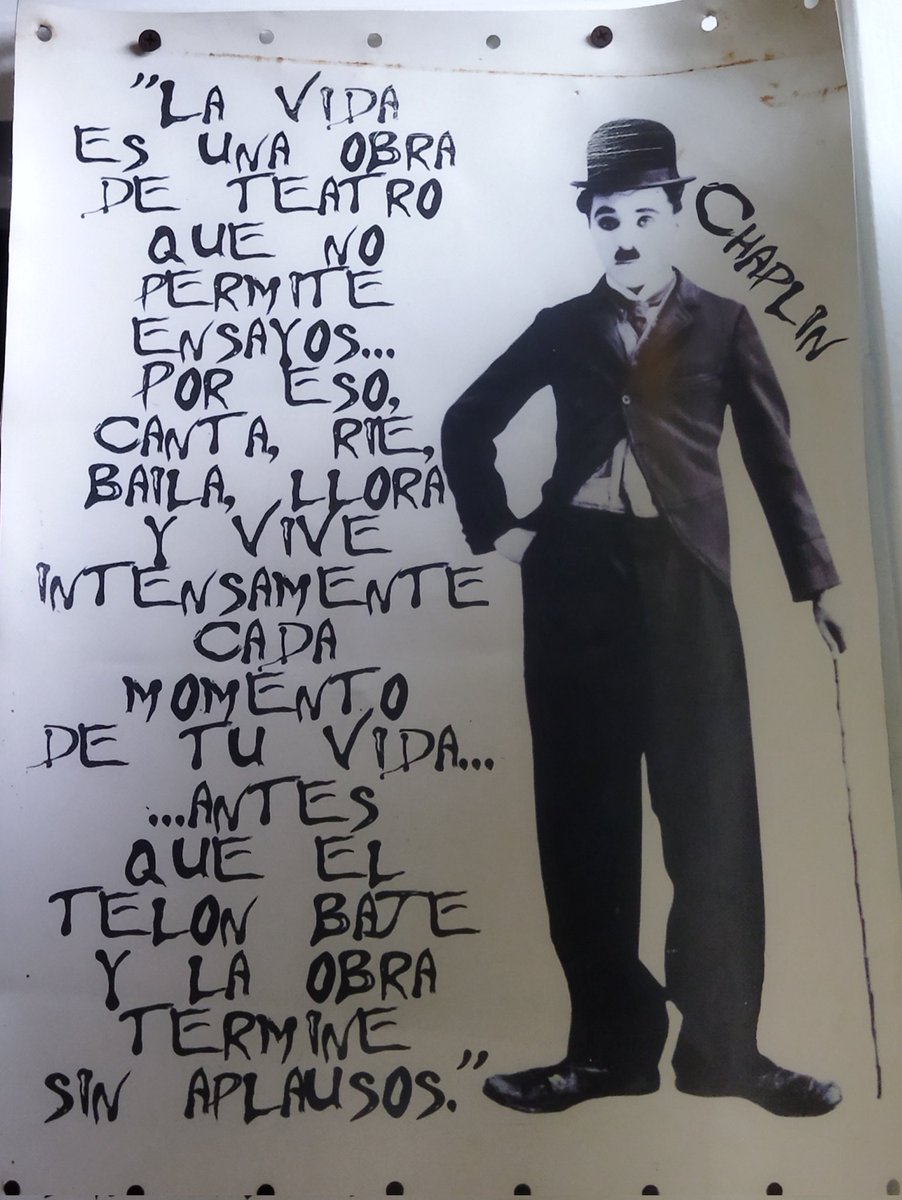 "LA VIDA
ES UNA OBRA
DE TEATRO
QUE NO
PERMITE
ENSAYOS...
POR ESO,
CANTA, RIE,
BAILA, LLORA
Y VIVE
INTENSAMENTE
CADA
MOMENTO
DE TU VIDA...
...ANTES
QUE EL
TELON BAJE
Y LA OBRA
TERMINE
SIN APLAUSOS."
CHAPLIN